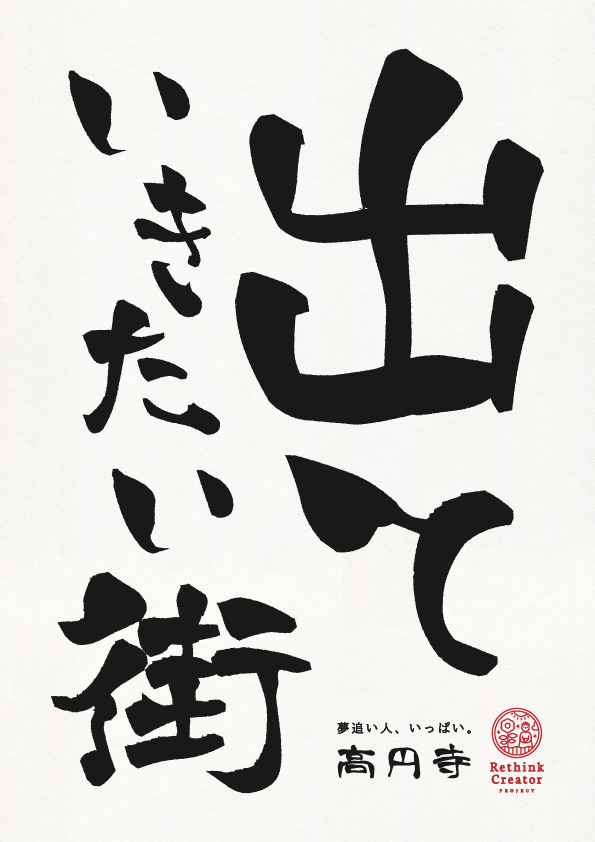 出て
いきたい街
夢追い人、いっぱい。
高円寺
Rethink
Creator
PROJECT